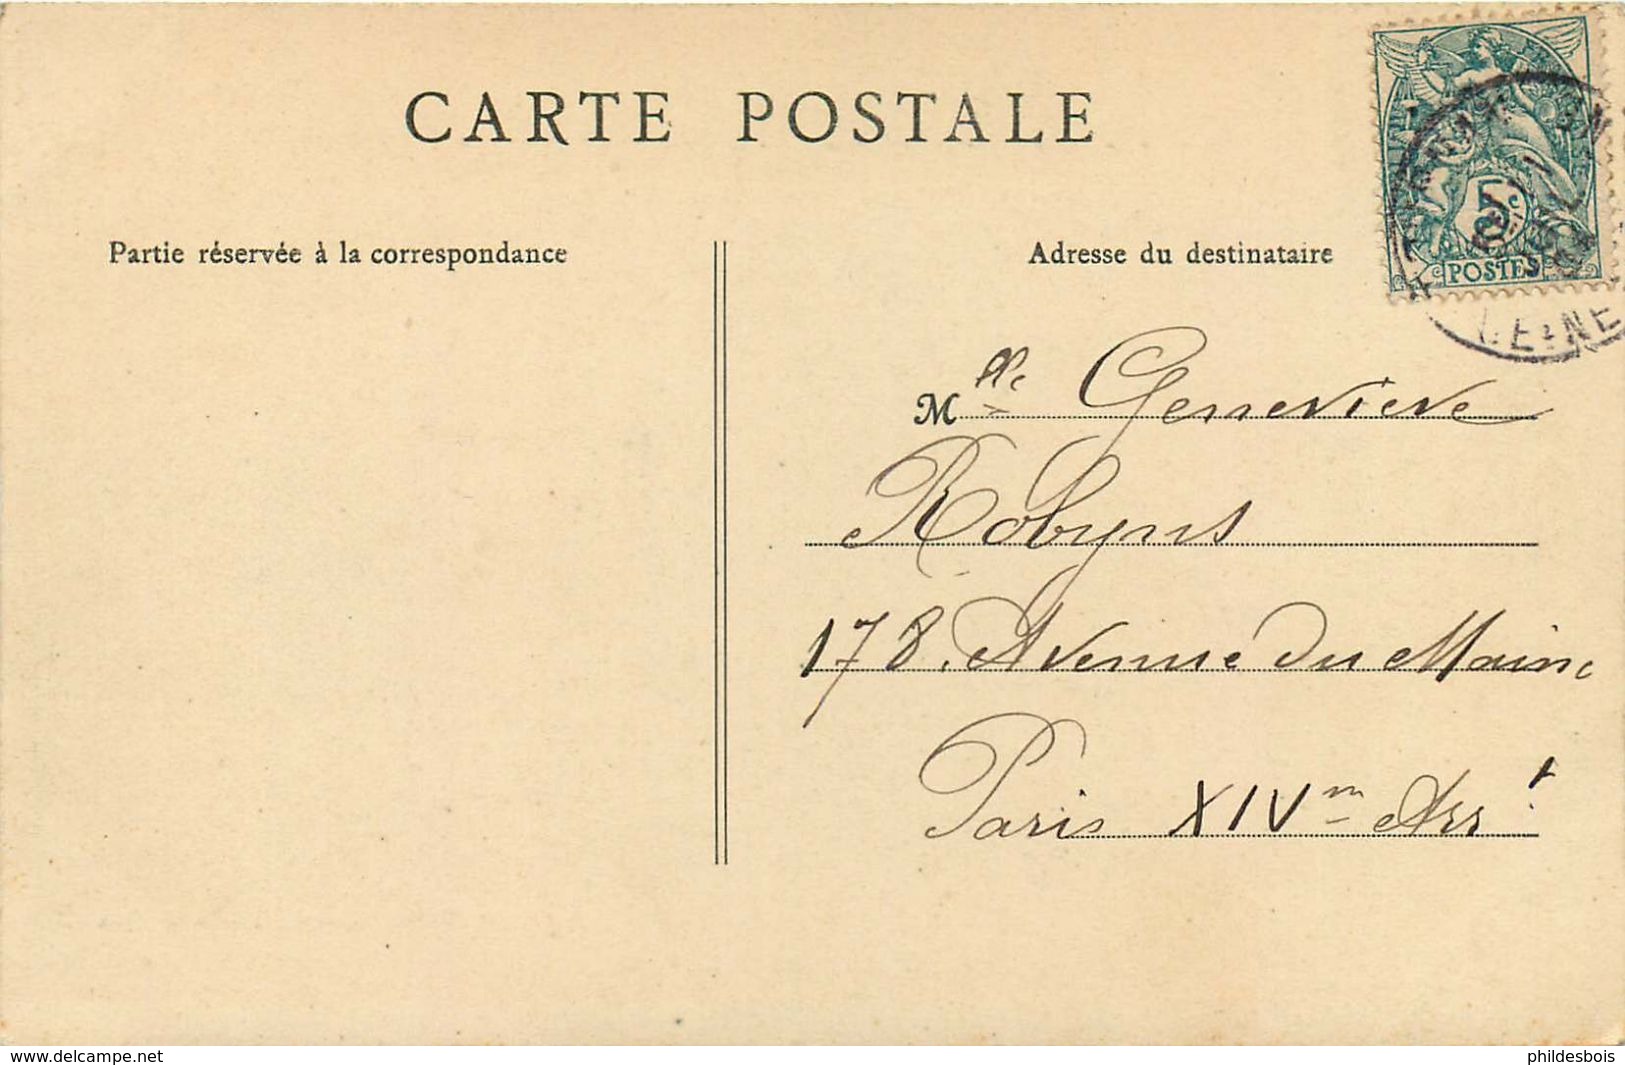 CARTE POSTALE
Partie réservée à la correspondance
Adresse du destinataire
5c
POSTES
SEINE
Mlle Genevieve
Robyns
178. Avenue du Maine
Paris XIVm Arrt
www.delcampe.net
phildesbois